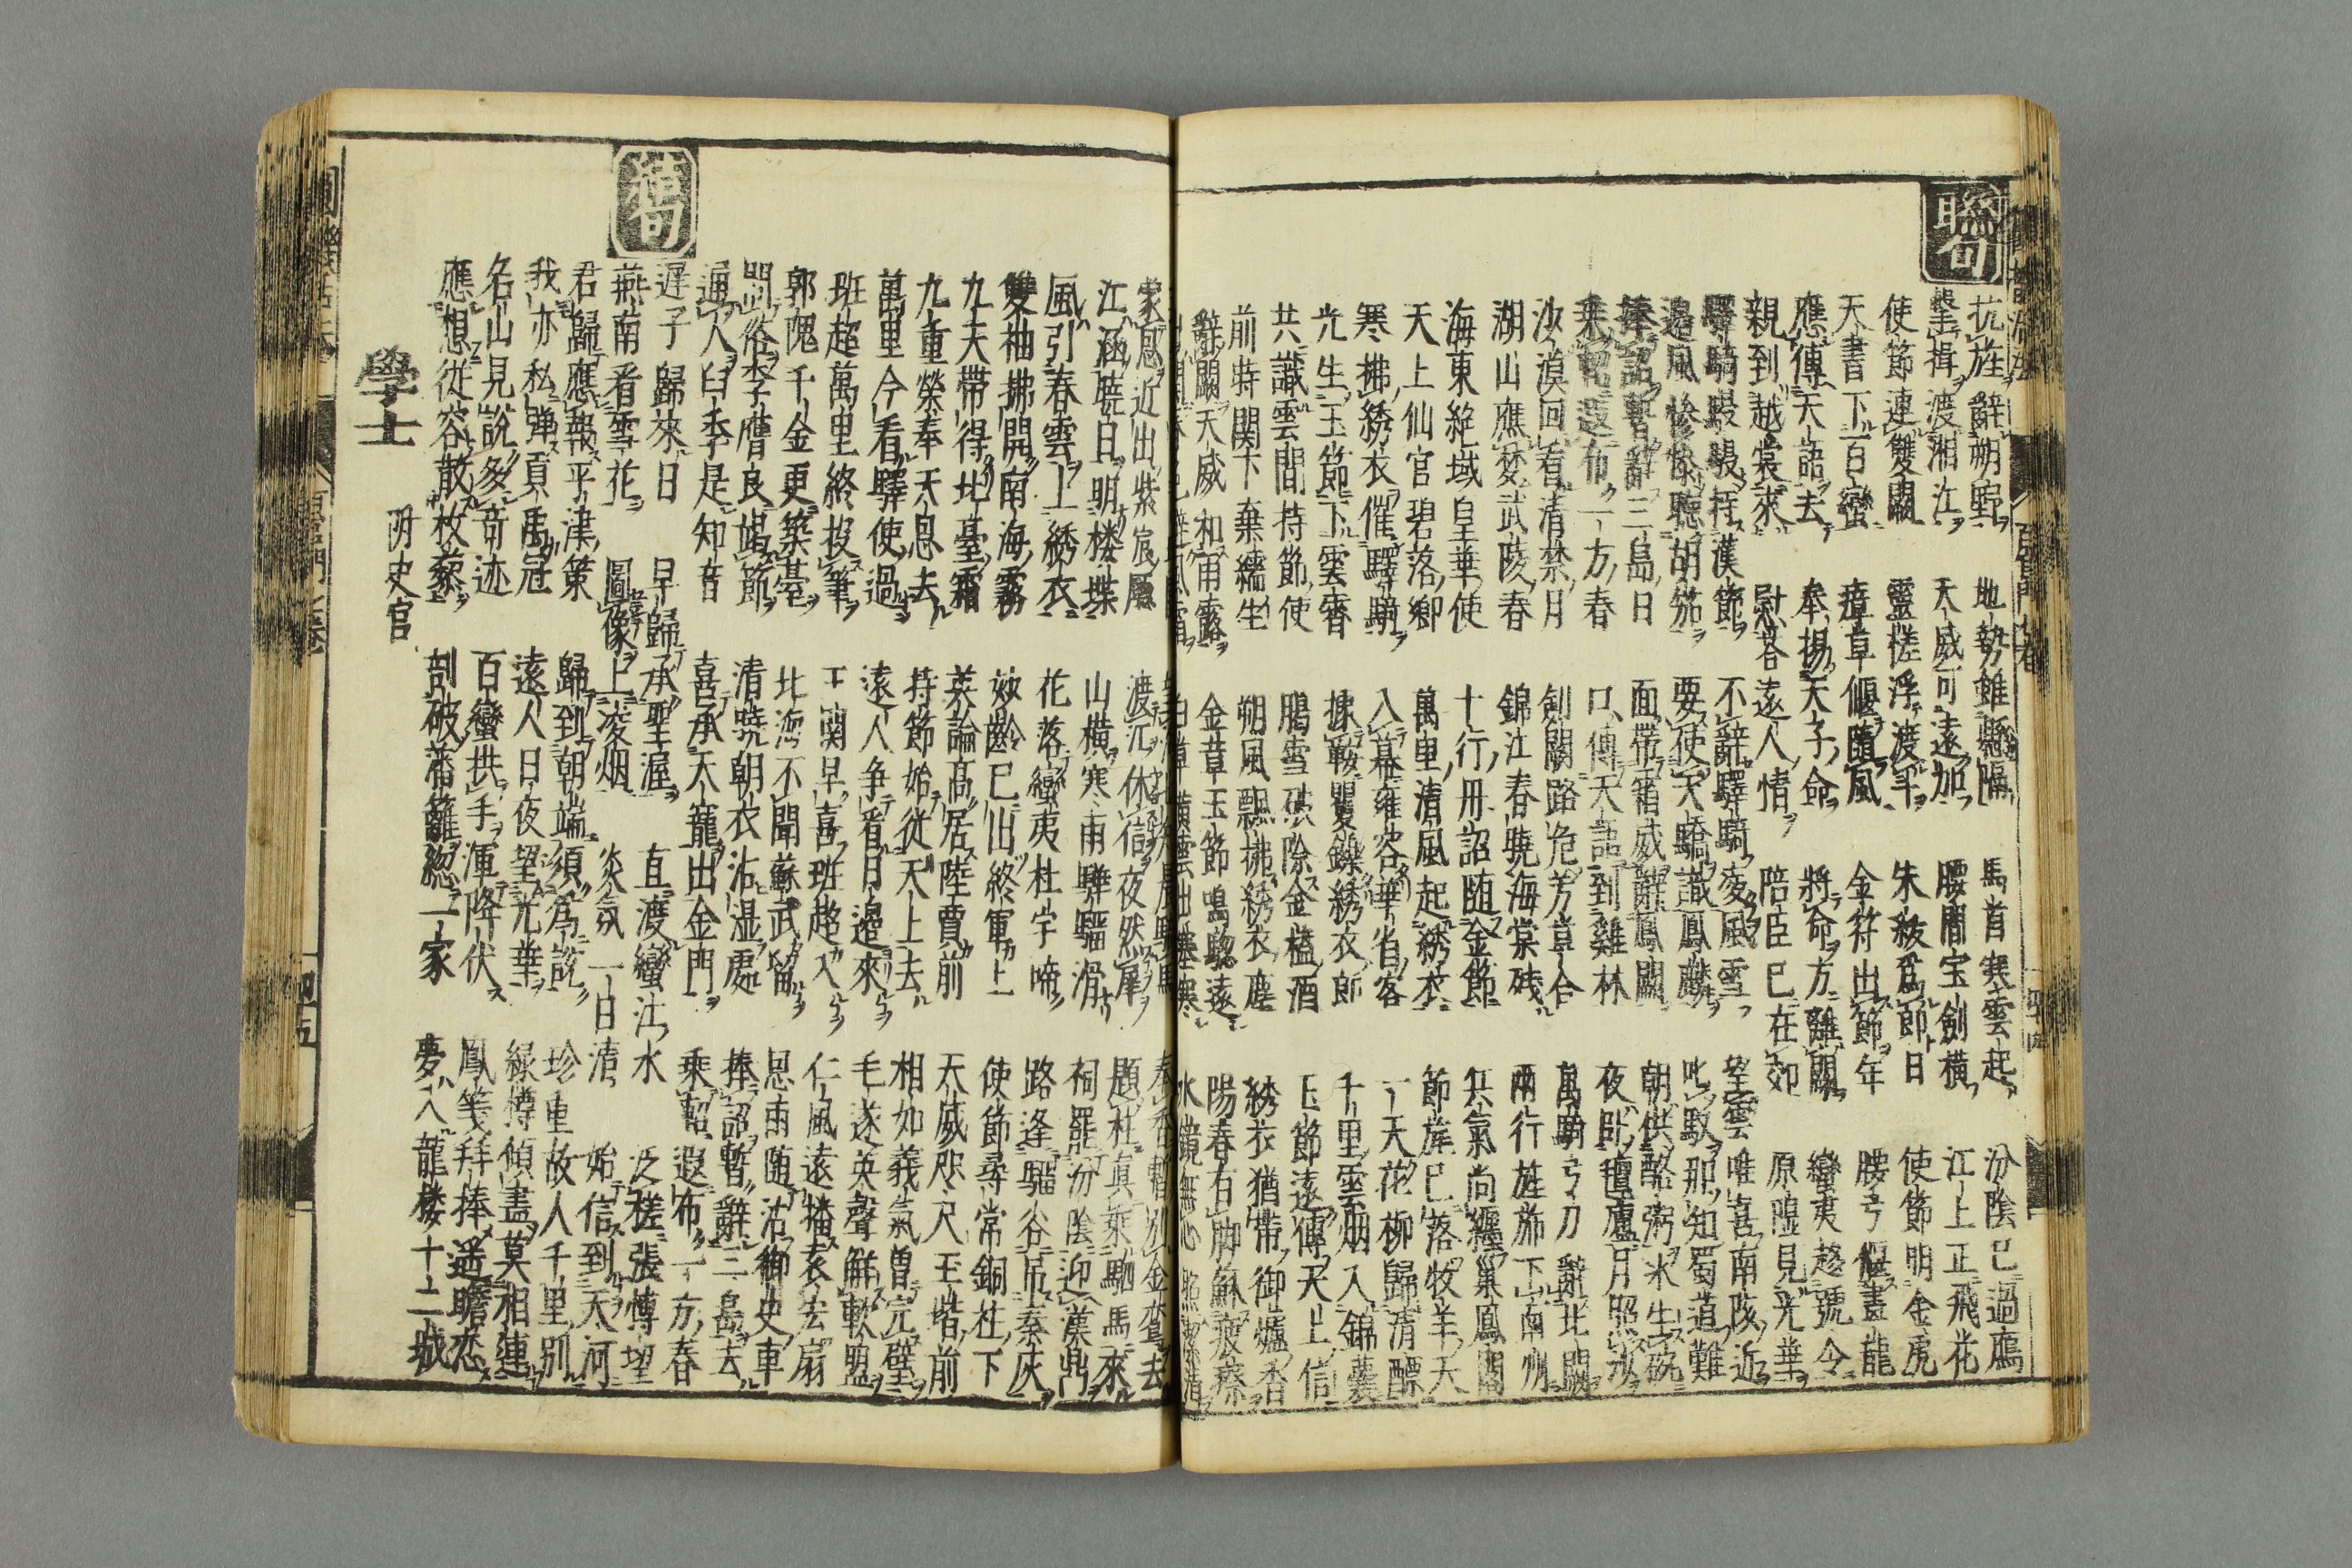 聯句
抗旌辭朔野 地勢雖縣隔 馬首寒雲起 汾陰已過鴈
擊楫渡湘江 天威可遠加 腰間宝劍横 江上正飛花
使節連雙闕 靈槎浮渡平 朱紱爲郎日 使節明金虎
天書下百蠻 瘴草偃隨風 金符出節年 腰弓偃畫龍
應傳天語去 奉揚天子命 將命方離闕 蠻夷趍號令
親到越裳來 慰答遠人情 陪臣已在郊 原隰見光華
驛騎騣騣持漢節 不辭驛騎凌風雪 望雲唯喜南陔近
邊風惨惨聴胡笳 要使天驕識鳳麟 叱馭那知蜀道難
捧詔暫辭三島日 面帶霜威辭鳳闕 朝供酪粥氷生碗
乗軺遐布一方春 口傳天語到雞林 夜臥氊廬月照沙
沙漠回看清禁月 劍閣路危芳草合 萬騎弓刀辭北闕
湖山應夢武陵春 錦江春曉海棠残 兩行旌旆下南州
海東絶域皇華使 十行丹詔随金節 共氣尚纏巢鳳閣
天上仙官碧落卿 萬里清風起綉衣 節旄已落牧羊天
寒拂綉衣催驛騎 入幕雍容華省客 一天花柳歸清醥
光生玉節下雲霄 揀鞍矍鑠綉衣郎 千里雲烟入錦囊
共識雲間持節使 鵬雪磧除金榼酒 玉節遠傳天上信
前時関下棄繻生 朔風飄拂綉衣塵 綉衣猶帶御爐香
辭闕天威和雨露 金章玉節鳴騘遠 陽春有脚蘇疲瘵
水鏡無心照
家息近出紫宸 渡江休信夜然犀 題柱真乗駟馬來
江涵曉日明楼堞 山横寒雨驊騮滑 祠罷汾陰迎漢鼎
風引春雲上綉衣 花落蠻夷杜宇啼 路逢驅谷吊秦灰
雙袖拂開南海霧 妙齡已出終軍上 使節尋常銅柱下
九天帶得北臺霜 英論髙居陸賈前 天威咫尺玉堦前
九重榮奉天恩去 持節始從天上去 相如義氣曽完璧
萬里今看驛使過 遠人争看日邉來 毛遂英聲鮮軟盟
班超萬里終投筆 玉関早喜班超入 仁風遠播袁宏扇
郭隗千金更築䑓 北海不聞蘇武留 恩雨随沾御史車
問俗李膺良竭節 清曉朝衣沾湿處 捧詔暫辭三島去
逋人臼季是知音 喜承天寵出金門 乗軺遐布一方春
舊句
遅子歸來日 早歸承聖渥 直渡蠻江水 泛槎張愽望
燕南看雪花 圖像上凌烟 炎氛一日清 始信到天河
君歸應報平津策 歸到朝端須爲説 珍重故人千里別
我亦私彈貢禹冠 遠人日夜望光華 緑樽傾盡莫相連
名山見説多奇迹 百蠻拱手渾降伏 鳳箋拜捧遥瞻恋
應想従容散枚藜 剖破藩籬総一家 夢入龍楼十二城
學士 附史官
四五